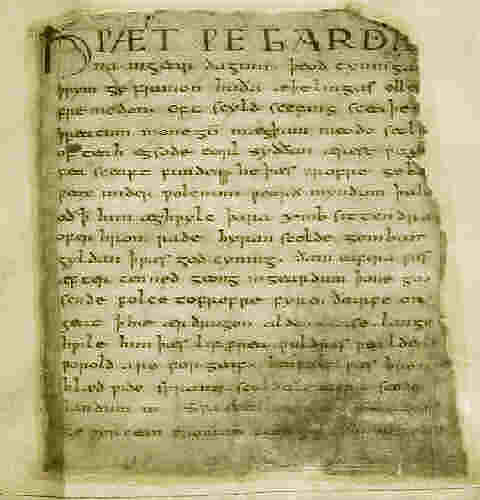 HǷÆT ǷE GARDE
na ingear dagum þeod cyninga
þrym ge frunon huða æþelingas elle
fremedon. oft scyld scefing sceaþe
þreatum monegū mægþum meodo setl
of teah egsode eorl syððan ærest ƿearð
fea sceaft funden he þæs frofre geba
ƿeox under ƿolcnum ƿeorð myndum þah
oð þ him æghƿylc þara ymb sittendra
ofer hron rade hyran scolde gomban
gyldan þ ƿæs god cyning. ðæm eafera ƿæs
æfter cenned geong ingeardum þone god
sende folce tofrofre fyren ðearfe on
geat þ hie ær drugon aldor ase lange
hƿile him þæs lif frea ƿuldres ƿealdend
ƿorold are for geaf. beoƿulf ƿæs breme
blæd ƿide sprang scyldes eafera scede
landum in